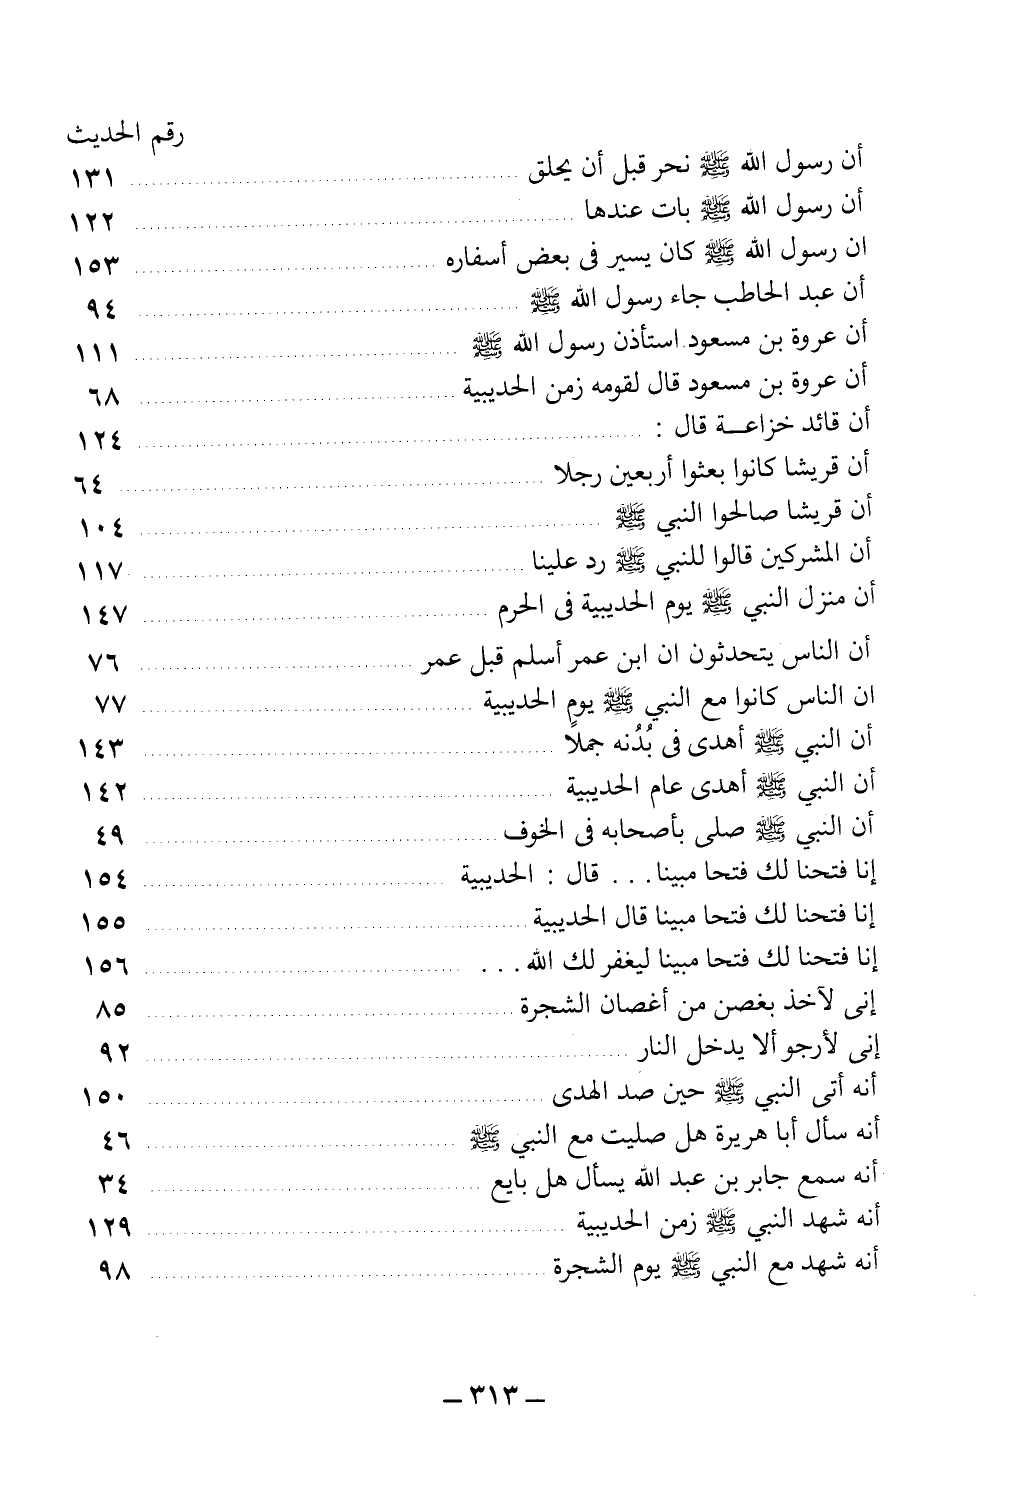 رقم الحديث
أن رسول الله ﷺ نحر قبل أن يحلق ١٣١
أن رسول الله ﷺ بات عندها ١٢٢
ان رسول الله ﷺ كان يسير فى بعض أسفاره ١٥٣
أن عبد الحاطب جاء رسول الله ﷺ ٩٤
أن عروة بن مسعود استأذن رسول الله ﷺ ١١١
أن عروة بن مسعود قال لقومه زمن الحديبية ٦٨
أن قائد خزاعـــة قال : ١٢٤
أن قريشا كانوا بعثوا أربعين رجلا ٦٤
أن قريشا صالحوا النبي ﷺ ١٠٤
أن المشركين قالوا للنبي ﷺ رد علينا ١١٧
أن منزل النبي ﷺ يوم الحديبية فى الحرم ١٤٧
أن الناس يتحدثون ان ابن عمر أسلم قبل عمر ٧٦
ان الناس كانوا مع النبي ﷺ يوم الحديبية ٧٧
أن النبي ﷺ أهدى فى بُدُنه جملًا ١٤٣
أن النبي ﷺ أهدى عام الحديبية ١٤٢
أن النبي ﷺ صلى بأصحابه فى الخوف ٤٩
إنا فتحنا لك فتحا مبينا . . . قال : الحديبية ١٥٤
إنا فتحنا لك فتحا مبينا قال الحديبية ١٥٥
إنا فتحنا لك فتحا مبينا ليغفر لك الله . . . ١٥٦
إنى لآخذ بغصن من أغصان الشجرة ٨٥
إنى لأرجو ألا يدخل النار ٩٢
أنه أتى النبي ﷺ حين صد الهدى ١٥٠
أنه سأل أبا هريرة هل صليت مع النبي ﷺ ٤٦
أنه سمع جابر بن عبد الله يسأل هل بايع ٣٤
أنه شهد النبي ﷺ زمن الحديبية ١٢٩
أنه شهد مع النبي ﷺ يوم الشجرة ٩٨
– ٣١٣ –